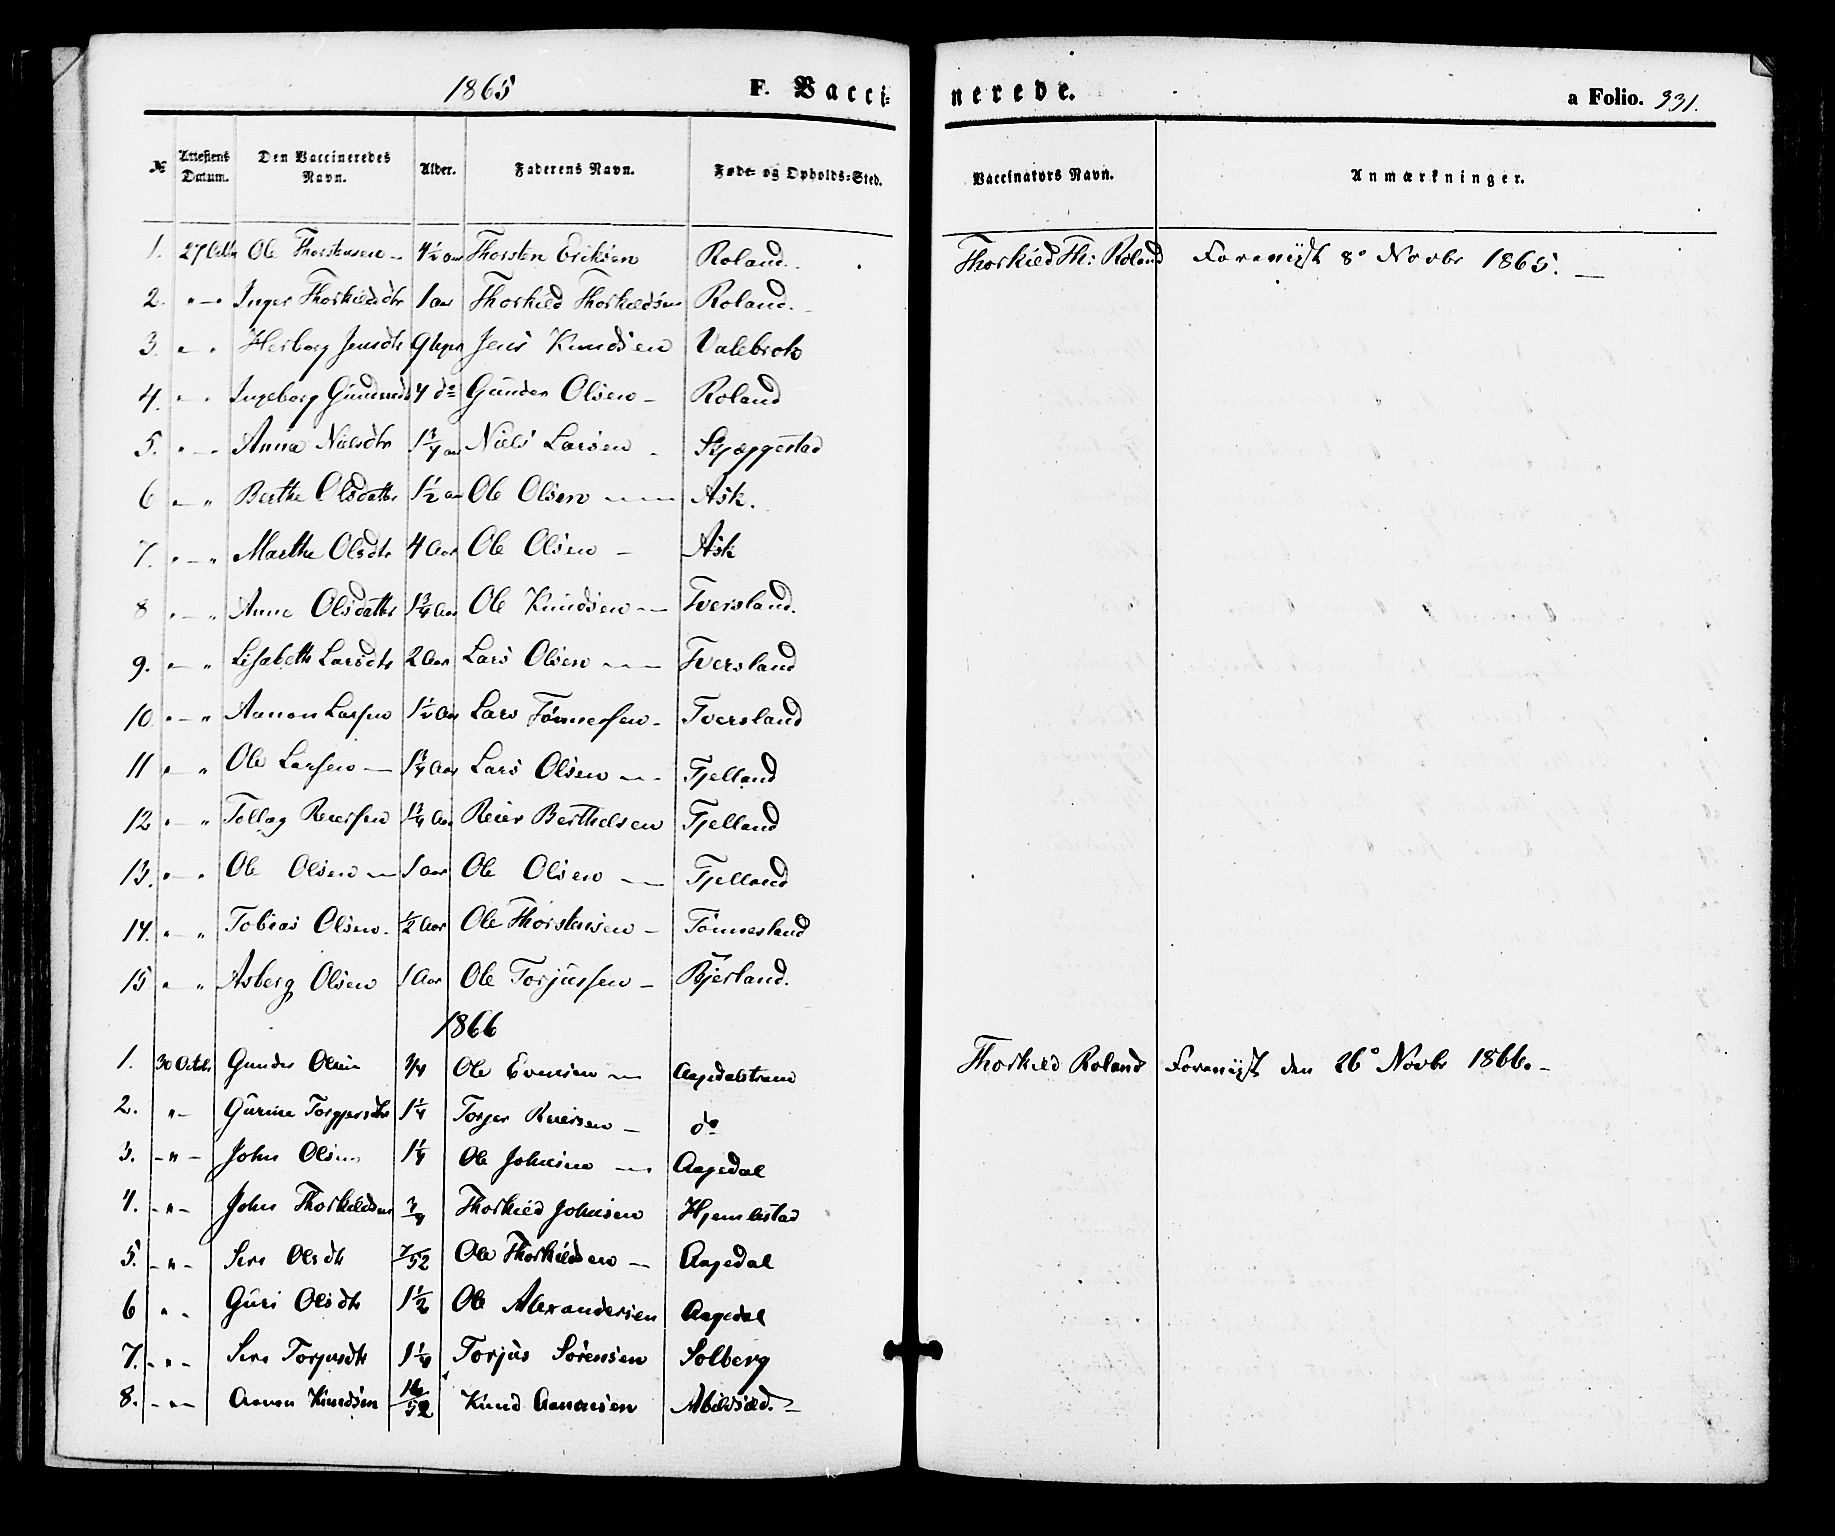 1865 F. Vaccinerede. a Folio. 331.
№ Attestens Datum. Den Vaccineredes Navn. Alder. Faderens Navn. Føde- og Opholds-Sted. Vaccinators Navn. Anmærkninger.
1. 27 Octbr Ole Thorstensen 4½ aar Thorsten Eriksen Roland. Thorkild Th: Roland Forevüst 8de Novbr 1865.
2. " Inger Thorkildsdtr 1 aar Thorkild Thorkildsen Roland.
3. " Herborg Jensdtr 9 Jens Knudsen Valebrok
4. " Ingeborg 4 do Gunder Olsen Roland
5. " Anna Nielsdtr 1¾ aar Niels Larsen Skjæggestad
6 " Berthe Olsdatter 1½ aar Ole Olsen Ask.
7. " Marthe Olsdtr 4 Aar Ole Olsen Ask
8 " Anne Olsdatter 1¾ Aar Ole Knudsen Tversland.
9. " Lisabeth Larsdtr 2 Aar Lars Olsen Tversland
10 " Aanon Larsen 1½ Aar Lars Tönnessen Tversland
11 " Ole Larsen 1¾ Aar Lars Olsen Fjelland
12 " Tollag Reiersen 1¾ Aar Reier Berthelsen Fjelland
13. " Ole Olsen 1 aar Ole Olsen Fjelland
14. " Tobias Olsen ½ Aar Ole Thorstensen Tönnesland
15 " Asberg Olsen 1 Aar Ole Torjussen Bjerland.
1866
1. 30 Octbr Gunder Olsen ¾ Ole Evensen Aagedalstrem Thorkild Roland Forevüst den 26de Novbr 1866.
2. " Gurine Torgjersdtr 1¼ Torger Reiersen do
3. " John Olsen 1¼ Ole Johnsen Aagedal
4. " John Thorkildsen ¾ Thorkild Johnsen Hjemlestad
5. " Siri Olsdtr 7/52 Ole Thorkildsen Aagedal
6 " Guri Olsdtr 1½ Ole Alexandersen Aagedal
7. " Siri Torjusdtr 1¼ Torjus Sörensen Solberg
8. " Aanon Knudsen 16/52 Knud Aanonsen